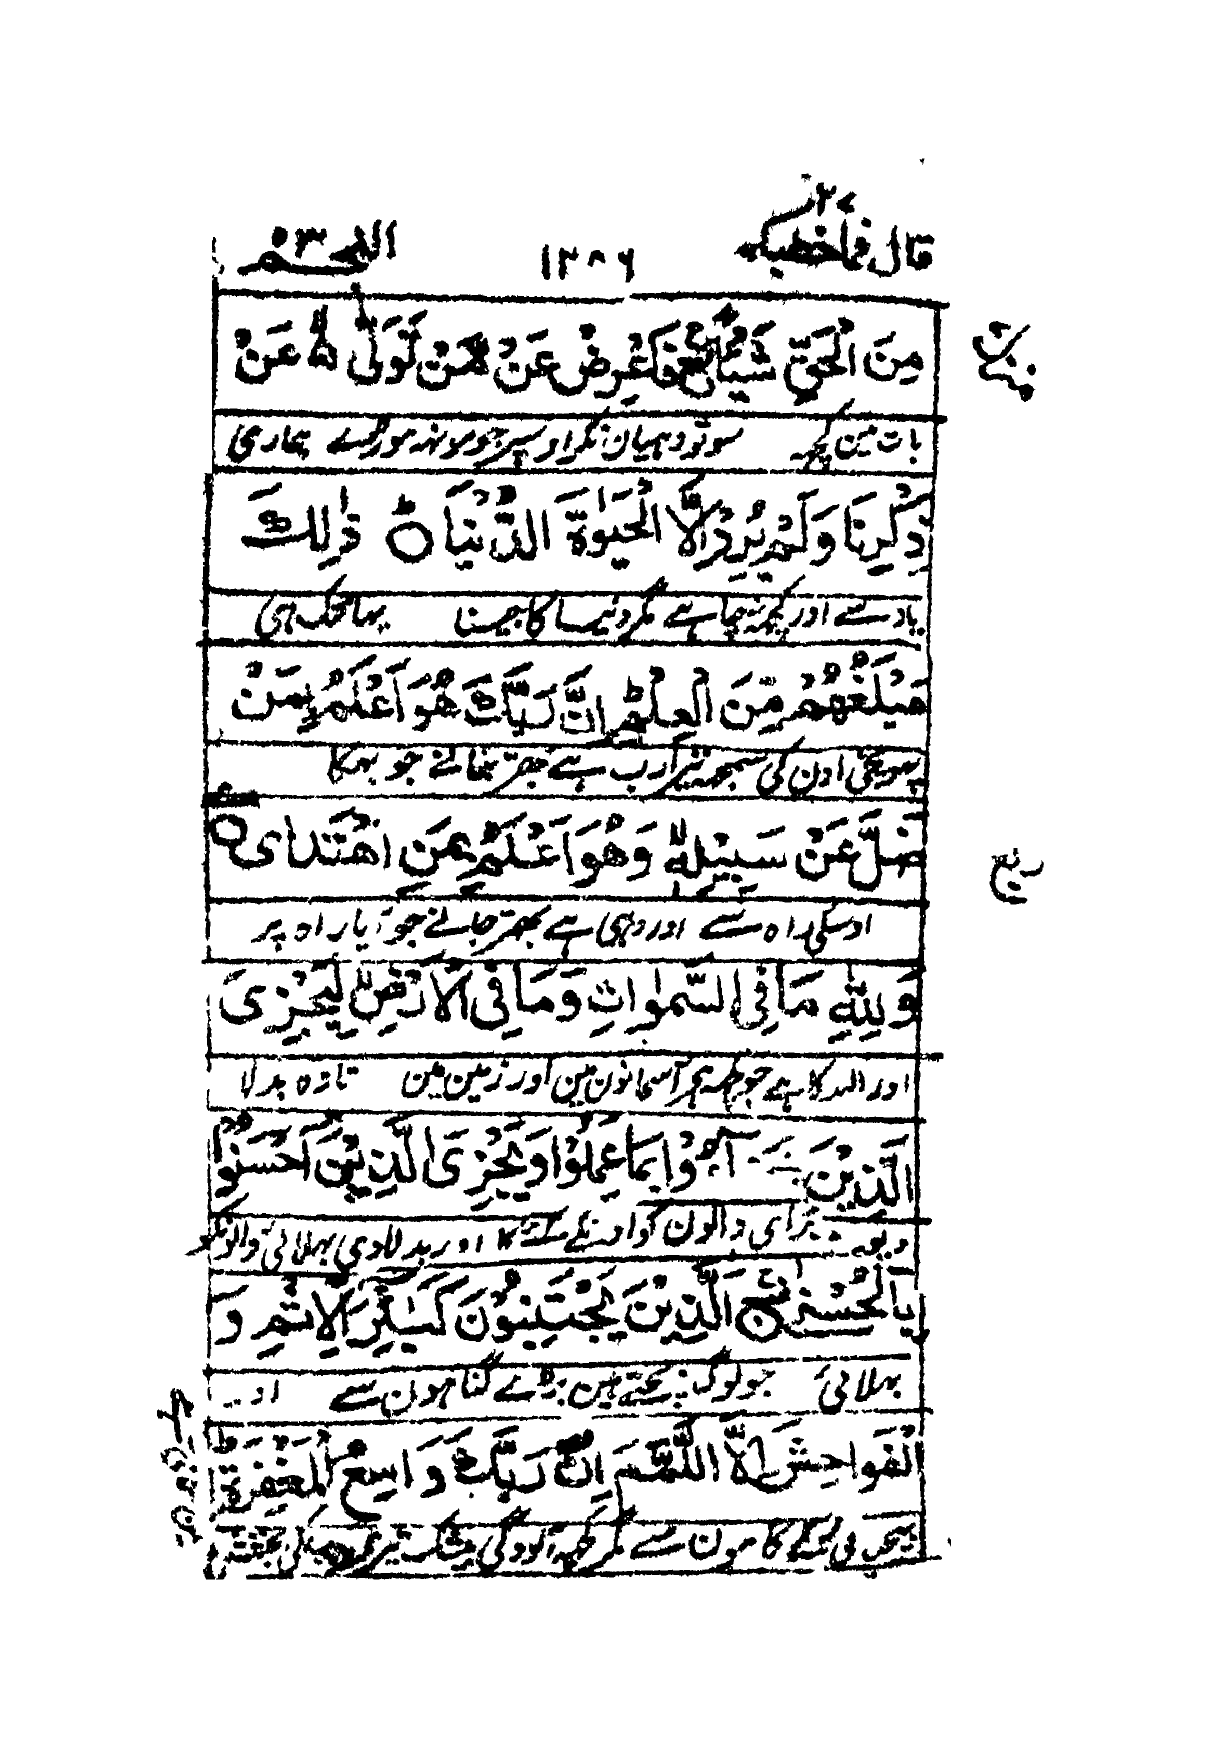 قال فما خطبكم ٢٧ ١٢٨٦ النجم ٥٣
مِنَ الْحَقِّ شَيْـًٔا فَاَعْرِضْ عَنْ مَّنْ تَوَلّٰى ۙ عَنْ
بات مین کچھ سو تو دہیان نکر اوسپر جو مونہہ موڑے ہماری
ذِكْرِنَا وَلَمْ يُرِدْ اِلَّا الْحَيٰوةَ الدُّنْيَا ؕ ذٰلِكَ
یاد سے اور کچھ نہ چاہے مگر دنیا کا جینا یہانتک ہی
مَبْلَغُهُمْ مِّنَ الْعِلْمِ ؕ اِنَّ رَبَّكَ هُوَ اَعْلَمُ بِمَنْ
پہونچی اون کی سمجھ تیرا رب ہے بہتر جانے جو بہکا
ضَلَّ عَنْ سَبِيْلِهٖ ۙ وَهُوَ اَعْلَمُ بِمَنِ اهْتَدٰى
اوسکی راہ سے اور وہی ہے بہتر جانے جو آیا راہ پر
وَلِلّٰهِ مَا فِى السَّمٰوٰتِ وَمَا فِى الْاَرْضِ ۙ لِيَجْزِىَ
اور اللہ کا ہے جو کچھ ہے آسمانون مین اور زمین مین تا وہ بدلا
الَّذِيْنَ اَسَآءُوْا بِمَا عَمِلُوْا وَيَجْزِىَ الَّذِيْنَ اَحْسَنُوْا
دیوے برائی والون کو اونکے کئے کا اور بدلا دی بہلائی والونکو
بِالْحُسْنٰى ۚ اَلَّذِيْنَ يَجْتَنِبُوْنَ كَبٰٓئِرَ الْاِثْمِ وَ
بہلائی جو لوگ بچتے ہین بڑے گناہون سے اور
الْفَوَاحِشَ اِلَّا اللَّمَمَ ؕ اِنَّ رَبَّكَ وَاسِعُ الْمَغْفِرَةِ ؕ
کامون سے مگر کچھ آلودگی بیشک تیرے